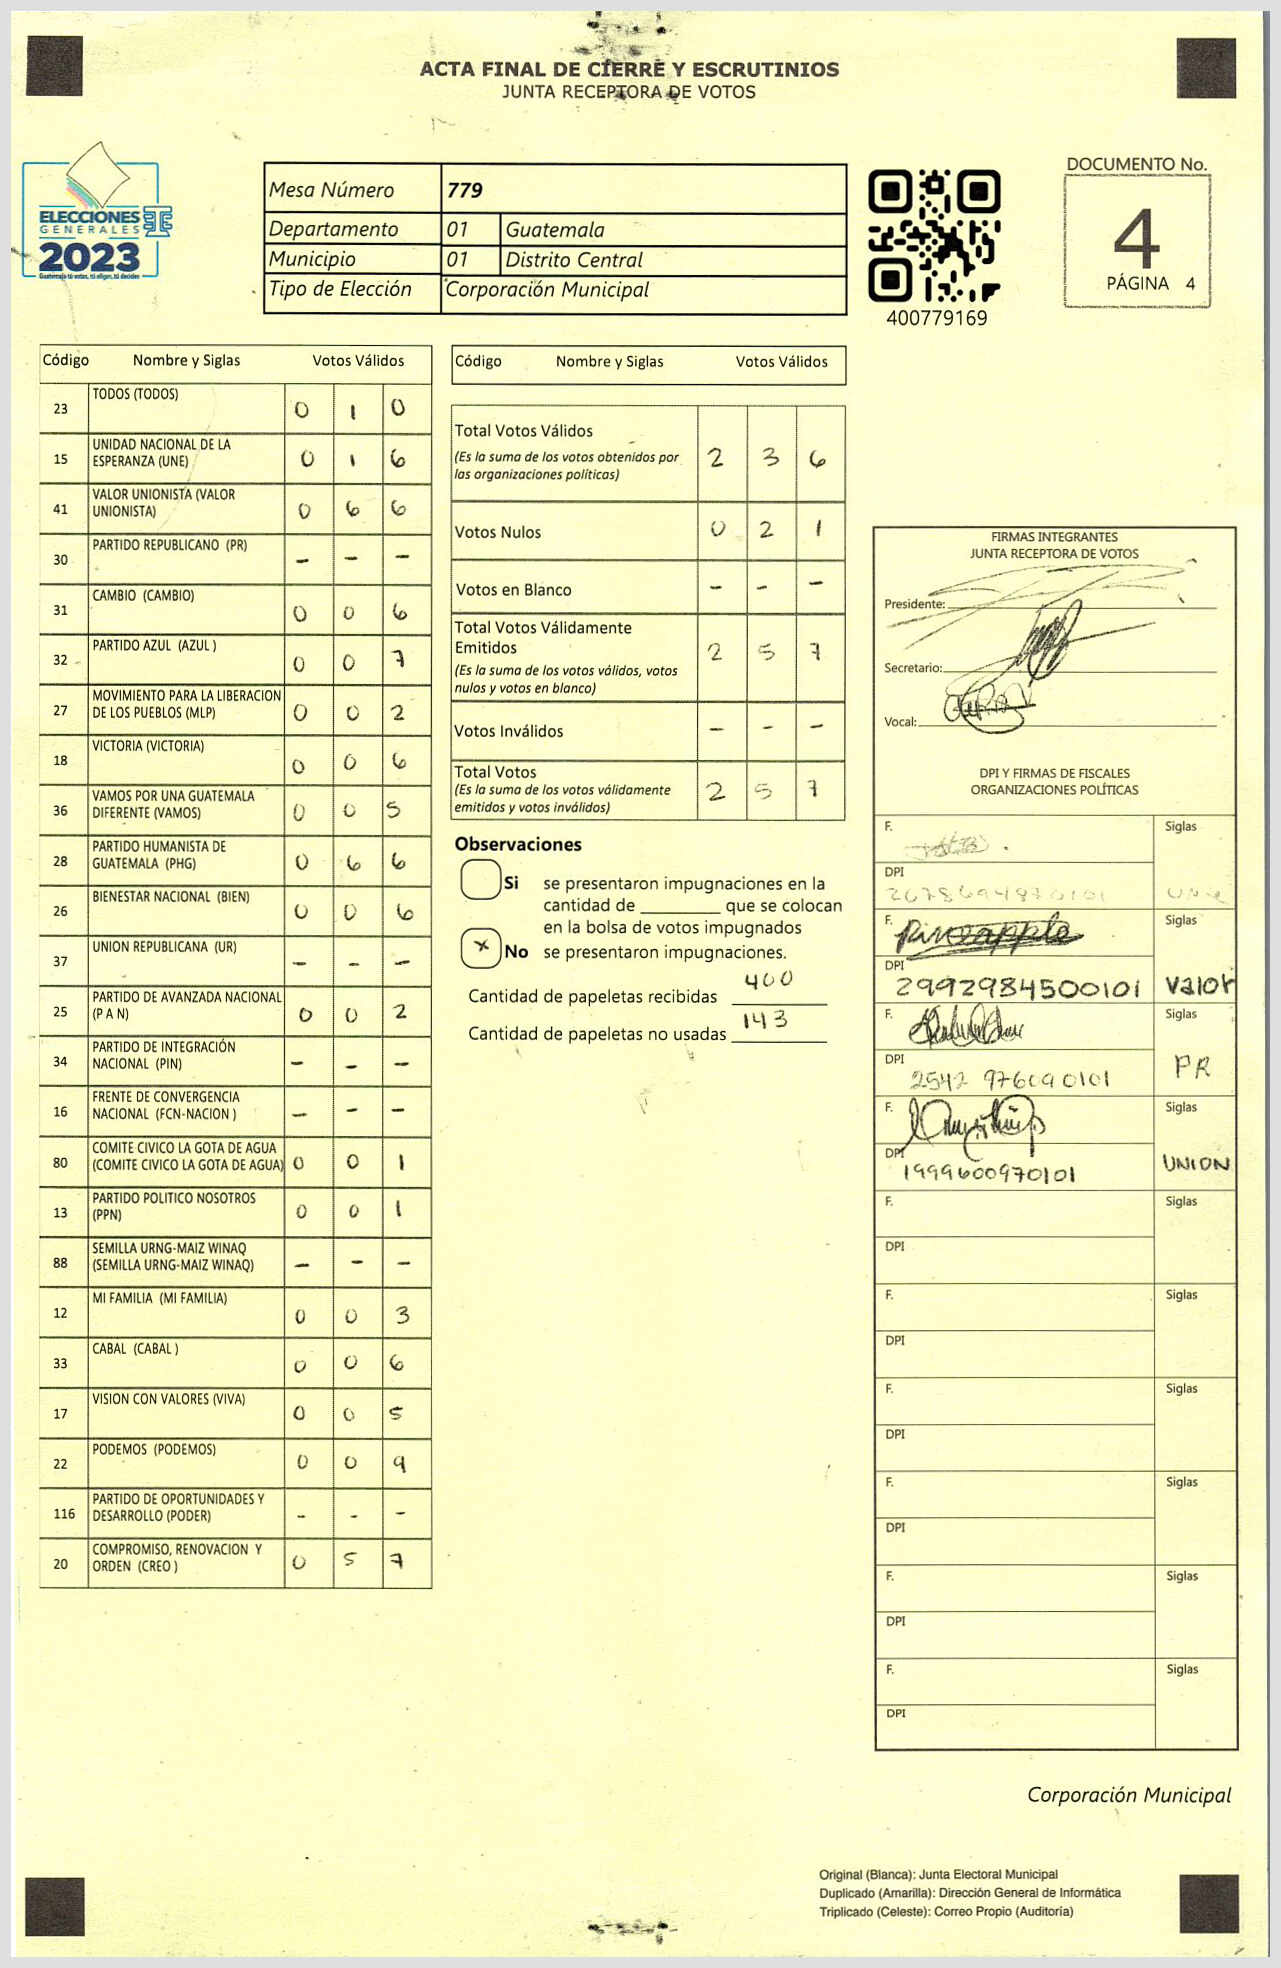 ACTA FINAL DE CIERRE Y ESCRUTINIOS
JUNTA RECEPTORA DE VOTOS
ELECCIONES
GENERALES
2023
Guatemala tú votas, tú eliges, tú decides
Mesa Número 779
Departamento 01 Guatemala
Municipio 01 Distrito Central
Tipo de Elección Corporación Municipal
400779169
DOCUMENTO No.
4
PÁGINA 4
Código Nombre y Siglas Votos Válidos
23 TODOS (TODOS) 0 1 0
15 UNIDAD NACIONAL DE LA
ESPERANZA (UNE) 0 1 6
41 VALOR UNIONISTA (VALOR
UNIONISTA) 0 6 6
30 PARTIDO REPUBLICANO (PR) - - -
31 CAMBIO (CAMBIO) 0 0 6
32 PARTIDO AZUL (AZUL ) 0 0 7
27 MOVIMIENTO PARA LA LIBERACION
DE LOS PUEBLOS (MLP) 0 0 2
18 VICTORIA (VICTORIA) 0 0 6
36 VAMOS POR UNA GUATEMALA
DIFERENTE (VAMOS) 0 0 5
28 PARTIDO HUMANISTA DE
GUATEMALA (PHG) 0 6 6
26 BIENESTAR NACIONAL (BIEN) 0 0 6
37 UNION REPUBLICANA (UR) - - -
25 PARTIDO DE AVANZADA NACIONAL
(P A N) 0 0 2
34 PARTIDO DE INTEGRACIÓN
NACIONAL (PIN) - - -
16 FRENTE DE CONVERGENCIA
NACIONAL (FCN-NACION ) - - -
80 COMITE CIVICO LA GOTA DE AGUA
(COMITE CIVICO LA GOTA DE AGUA) 0 0 1
13 PARTIDO POLITICO NOSOTROS
(PPN) 0 0 1
88 SEMILLA URNG-MAIZ WINAQ
(SEMILLA URNG-MAIZ WINAQ) - - -
12 MI FAMILIA (MI FAMILIA) 0 0 3
33 CABAL (CABAL ) 0 0 6
17 VISION CON VALORES (VIVA) 0 0 5
22 PODEMOS (PODEMOS) 0 0 9
116 PARTIDO DE OPORTUNIDADES Y
DESARROLLO (PODER) - - -
20 COMPROMISO, RENOVACION Y
ORDEN (CREO ) 0 5 7
Código Nombre y Siglas Votos Válidos
Total Votos Válidos 2 3 6
(Es la suma de los votos obtenidos por
las organizaciones políticas)
Votos Nulos 0 2 1
Votos en Blanco - - -
Total Votos Válidamente
Emitidos 2 5 7
(Es la suma de los votos válidos, votos
nulos y votos en blanco)
Votos Inválidos - - -
Total Votos
(Es la suma de los votos válidamente 2 5 7
emitidos y votos inválidos)
Observaciones
Si se presentaron impugnaciones en la
cantidad de ________ que se colocan
en la bolsa de votos impugnados
x No se presentaron impugnaciones.
Cantidad de papeletas recibidas 400
Cantidad de papeletas no usadas 143
FIRMAS INTEGRANTES
JUNTA RECEPTORA DE VOTOS
Presidente:
Secretario:
Vocal:
DPI Y FIRMAS DE FISCALES
ORGANIZACIONES POLÍTICAS
F. Siglas
DPI
F. Pineapple Siglas
DPI
2992984500101 Valor
F. Siglas
DPI PR
2542 976090101
F. Siglas
DPI
1999600970101 UNION
F. Siglas
DPI
F. Siglas
DPI
F. Siglas
DPI
F. Siglas
DPI
F. Siglas
DPI
F. Siglas
DPI
Corporación Municipal
Original (Blanca): Junta Electoral Municipal
Duplicado (Amarilla): Dirección General de Informática
Triplicado (Celeste): Correo Propio (Auditoría)